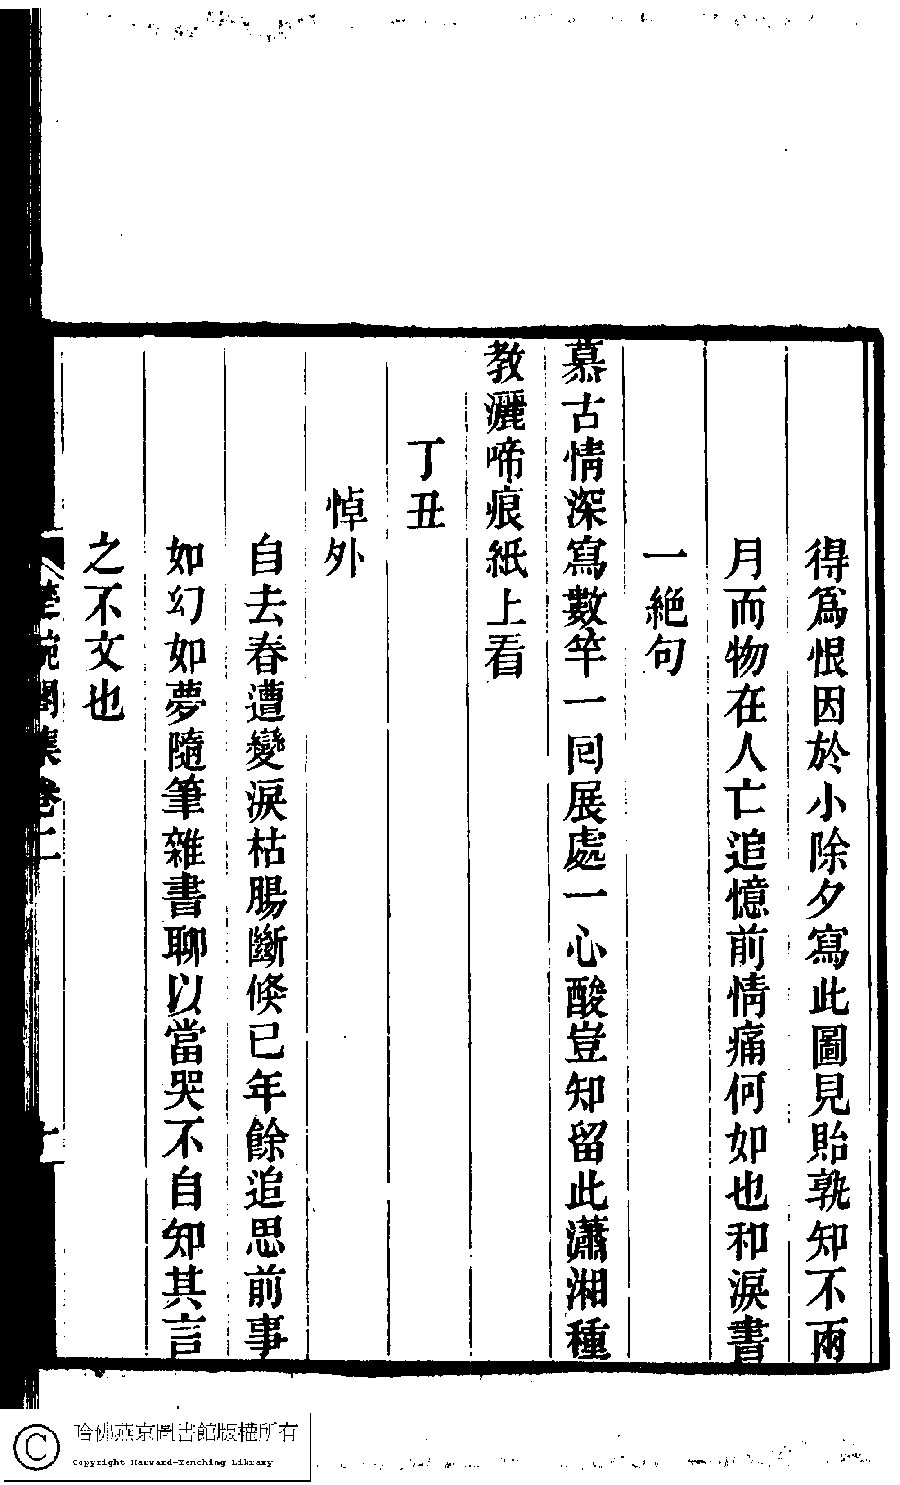 得爲恨因於小除夕寫此圖見貽孰知不兩
月而物在人亡追憶前情痛何如也和淚書
一絕句
慕古情深寫數竿一回展處一心酸豈知留此瀟湘種
教灑啼痕紙上看
丁丑
悼外
自去春遭變淚枯腸斷倏已年餘追思前事
如幻如夢隨筆雜書聊以當哭不自知其言
之不文也
閣集卷二
十
哈佛燕京圖書館版權所有
Copyright Harvard-Yenching Library